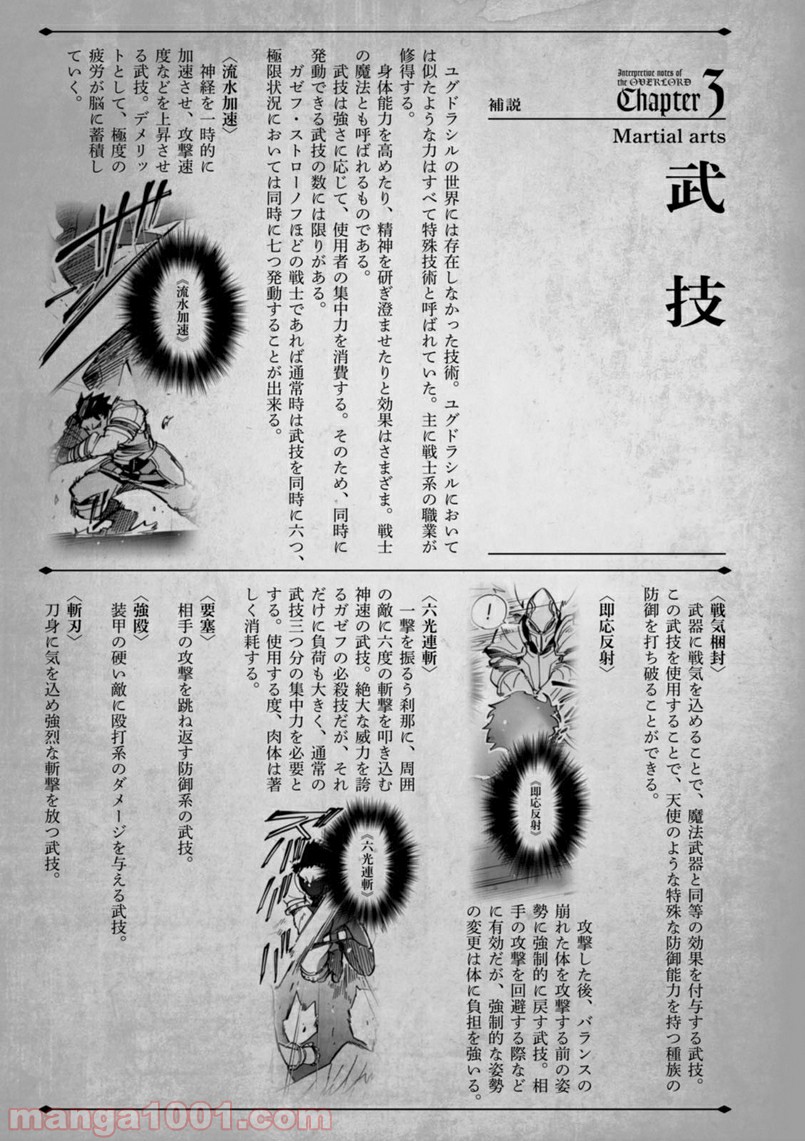 Interpretive notes of
the OVERLORD
Chapter 3
補説
Martial arts
武技
ユグドラシルの世界には存在しなかった技術。ユグドラシルにおいて
は似たような力はすべて特殊技術と呼ばれていた。主に戦士系の職業が
修得する。
身体能力を高めたり、精神を研ぎ澄ませたりと効果はさまざま。戦士
の魔法とも呼ばれるものである。
武技は強さに応じて、使用者の集中力を消費する。そのため、同時に
発動できる武技の数には限りがある。
ガゼフ・ストローノフほどの戦士であれば通常時は武技を同時に六つ、
極限状況においては同時に七つ発動することが出来る。
〈流水加速〉
神経を一時的に
加速させ、攻撃速
度などを上昇させ
る武技。デメリッ
トとして、極度の
疲労が脳に蓄積し
ていく。
《流水加速》
〈戦気梱封〉
武器に戦気を込めることで、魔法武器と同等の効果を付与する武技。
この武技を使用することで、天使のような特殊な防御能力を持つ種族の
防御を打ち破ることができる。
〈即応反射〉
!
《即応反射》
攻撃した後、バランスの
崩れた体を攻撃する前の姿
勢に強制的に戻す武技。相
手の攻撃を回避する際など
に有効だが、強制的な姿勢
の変更は体に負担を強いる。
〈六光連斬〉
一撃を振るう刹那に、周囲
の敵に六度の斬撃を叩き込む
神速の武技。絶大な威力を誇
るガゼフの必殺技だが、それ
だけに負荷も大きく、通常の
武技三つ分の集中力を必要と
する。使用する度、肉体は著
しく消耗する。
《六光連斬》
〈要塞〉
相手の攻撃を跳ね返す防御系の武技。
〈強殴〉
装甲の硬い敵に殴打系のダメージを与える武技。
〈斬刃〉
刀身に気を込め強烈な斬撃を放つ武技。
manga1001.com